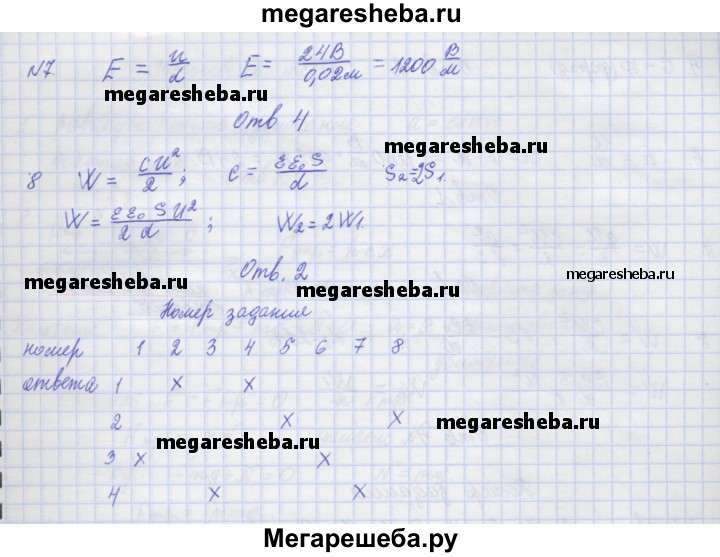 megaresheba.ru
№7. E = U/d E = 24В/0,02м = 1200 В/м
megaresheba.ru
Отв 4
megaresheba.ru
8 W = CU²/2; C = εε₀S/d S₂=2S₁.
W = εε₀SU²/2d; W₂ = 2W₁.
Отв. 2
megaresheba.ru
megaresheba.ru
megaresheba.ru
Номер задания
номер 1 2 3 4 5 6 7 8
ответа 1 x x
2 x x
megaresheba.ru
megaresheba.ru
3 x x
4 x x
Мегарешеба.ру